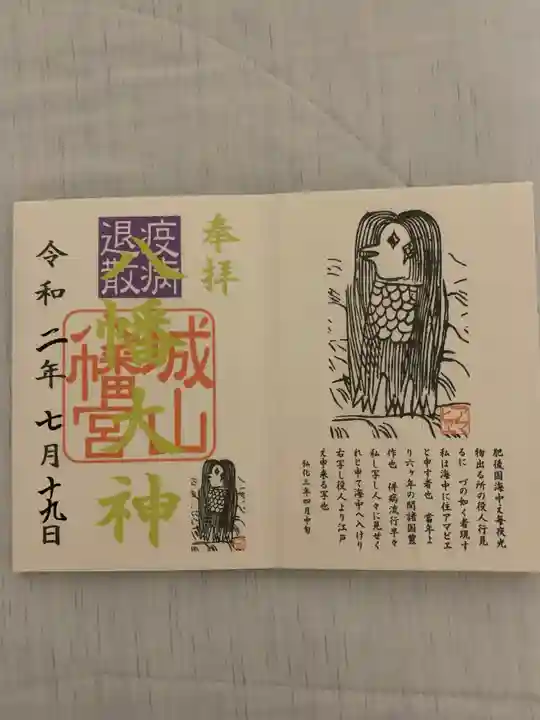 肥後国海中え毎夜光
物出る所の役人行見
るに づの如く者現す
私は海中に住アマビエ
と申す者也 當年よ
り六ヶ年の間諸国豊
作也 併病流行早々
私し写し人々に見せく
れと申て海中へ入けり
右写し役人より江戸
え申来る写也
弘化三年四月中旬
奉拝
疫病
退散
八幡大神
城山
八幡宮
令和二年七月十九日